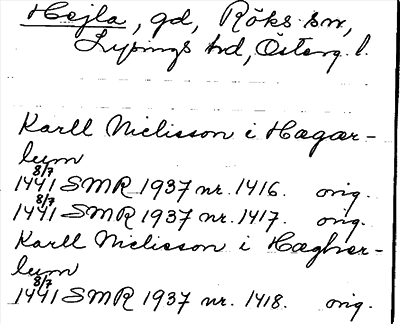 Hejla, gd, Röks sn,
Lysings hd, Österg. l.
Karll Niclisson i Hagar-
lum
8/7
1441 SMR 1937 nr. 1416. orig.
8/7
1441 SMR 1937 nr. 1417. orig.
Karll Niclisson i Haghar-
lum
8/7
1441 SMR 1937 nr. 1418. orig.